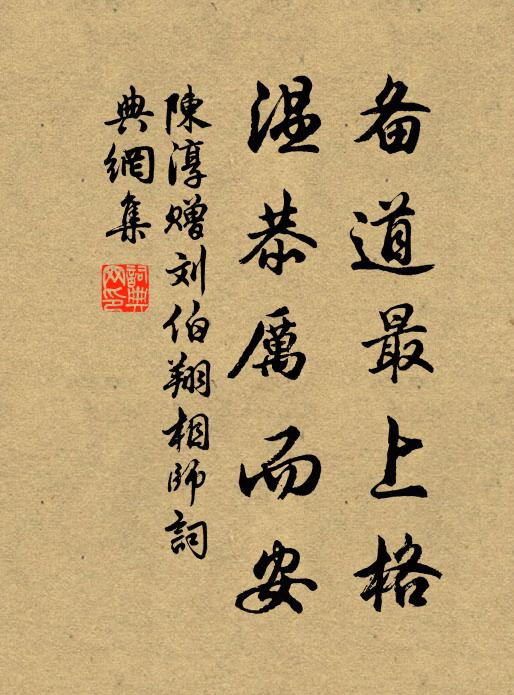 备道最上格
温恭厲而安
陳淳赠刘伯翔相師詞
典網集
詞典
网印